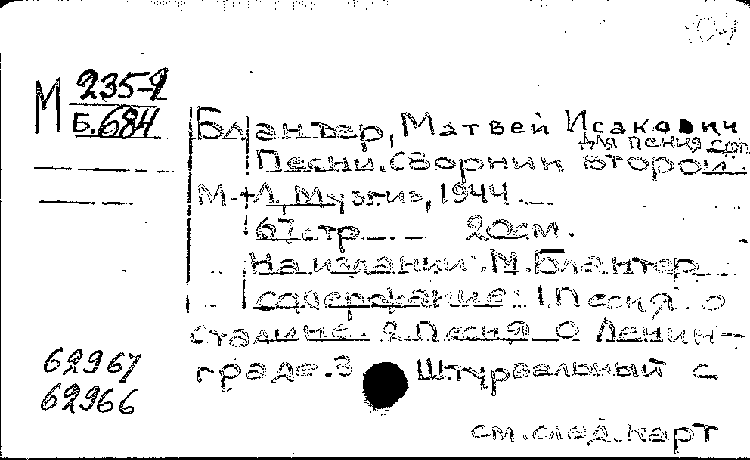 104
М 235-2
Б.684
Блантер, Матвей Исакович
для пения соп
Песни. Сборник второй.
М.-Л., Музгиз, 1944.
67 стр. 20см.
На издании: М. Блантер
содержание: 1. Песня о
стадионе. 2. Песня о Ленин-
граде. 3 Штурвальный с
62967
62966
см. след. карт